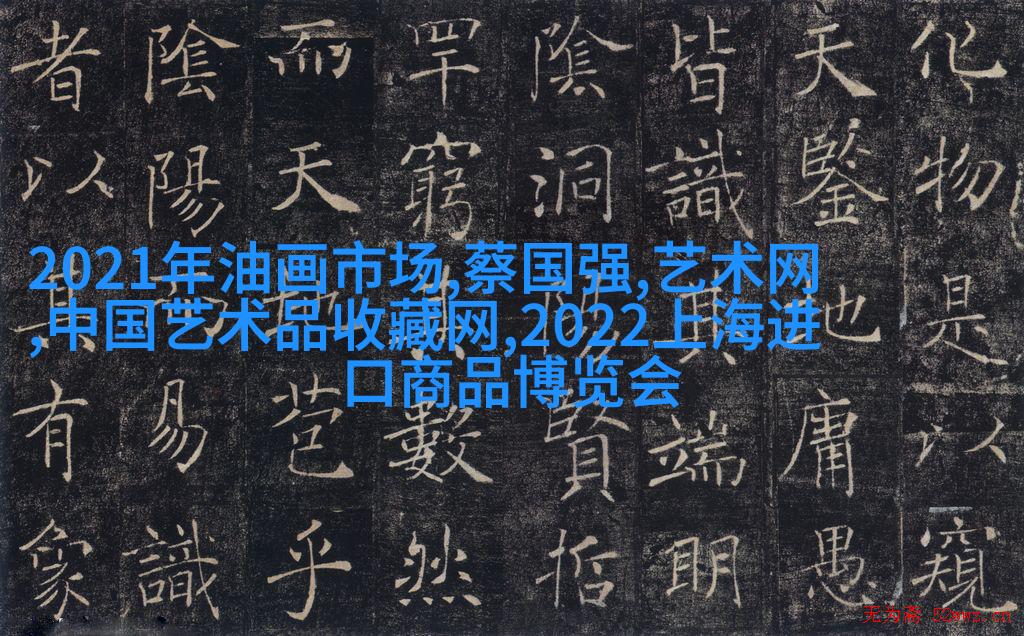 2021年油画市场,蔡国强,艺术网
,中国艺术品收藏网,2022上海进
口商品博览会
化物是以窺
天鑒地庸愚
皆識其端明
陰洞陽賢哲
罕窮其數然
而天地苞乎
陰陽而易識
者以其有象
无为斋 52wwz.cn